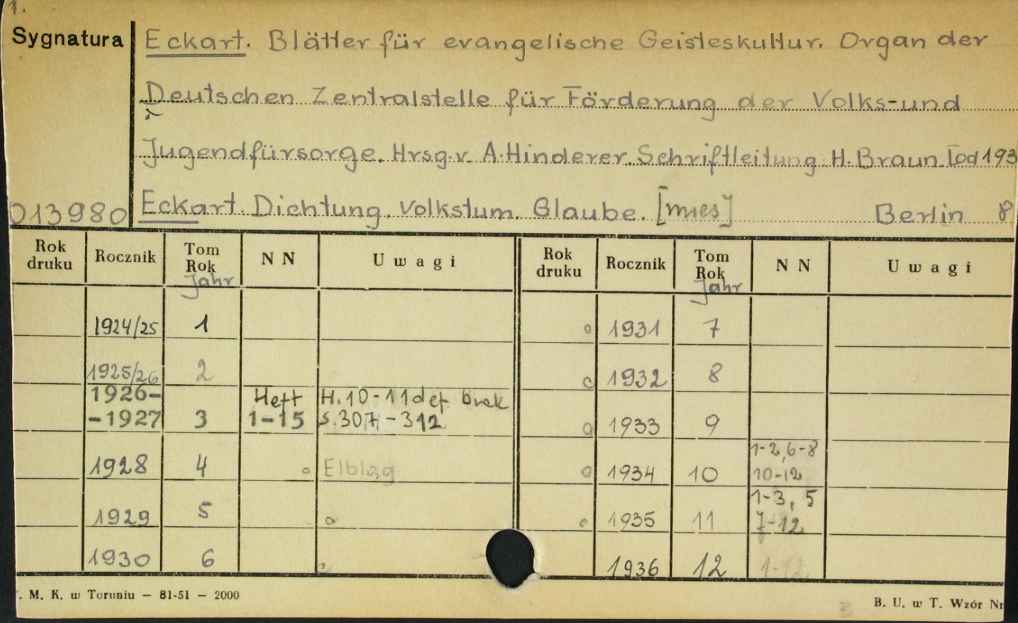 1.
Sygnatura Eckart. Blätter für evangelische Geisteskultur. Organ der
Deutschen Zentralstelle für Förderung der Volks-und
Jugendfürsorge. Hrsg. v. A. Hinderer. Schriftleitung H. Braun. [od 193
013980 Eckart. Dichtung. Volkstum. Glaube. [mies] Berlin 8
Rok druku Rocznik Tom Rok Jahr NN Uwagi Rok druku Rocznik Tom Rok Jahr NN Uwagi
1924/25 1 o 1931 7
1925/26 2 o 1932 8
1926-
-1927 3 Heft 1-15 H. 10-11 def. brak s. 307-312 o 1933 9
1928 4 o Elbląg o 1934 10 1-2, 6-8 10-12
1929 5 o o 1935 11 1-3, 5 7-12
1930 6 o 1936 12 1-12
. M. K. w Toruniu — 81-51 — 2000 B. U. w T. Wzór Nr